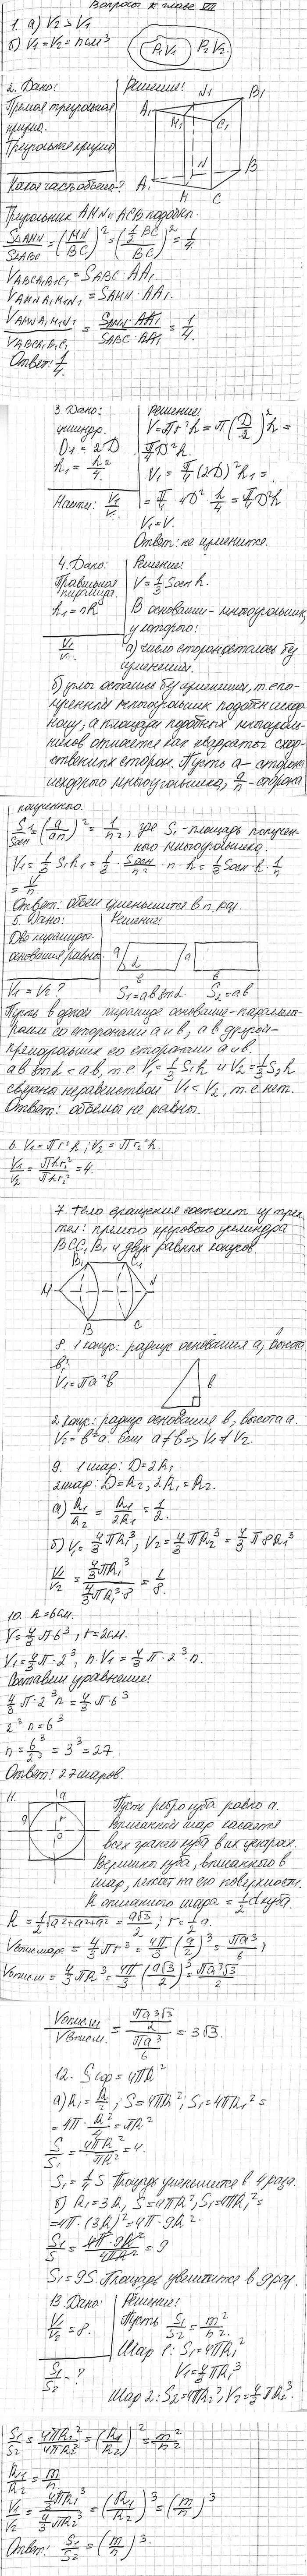 Вопросы к главе VII
1. а) V₂ > V₁
б) V₁ = V₂ = n см³
P₁V₁ P₂V₂
2. Дано: Решение:
Прямая треугольная
призма.
Треугольная призма
Какое часть объема?
A₁ N₁ B₁ M₁ C₁
A N B M C
Треугольник AMN и ACB подобн.
S△AMN/S△ABC = (MN/BC)² = (½BC/BC)² = 1/4.
V ABCA₁B₁C₁ = S ABC · AA₁
V AMNA₁M₁N₁ = S AMN · AA₁.
V AMNA₁M₁N₁/V ABCA₁B₁C₁ = S AMN · AA₁/S ABC · AA₁ = 1/4.
Ответ: 1/4.
3 Дано: Решение:
цилиндр. V = πr²h = π(D/2)²h =
D₁ = 2D π/4 D²h.
h₁ = h/4. V₁ = π/4 (2D)²h₁ =
= π/4 · 4D² · h/4 = π/4 D²h
Найти: V₁/V V₁ = V.
Ответ: не изменится.
4. Дано: Решение:
Правильная V = 1/3 Sосн h.
пирамида.
h₁ = nh В основании - многоугольник,
у которого:
V₁/V. а) число сторон осталось без
изменений.
б) углы остались без изменения, т.е. по-
лученный многоугольник подобен исход-
ному, а площади подобных многоуголь-
ников относятся как квадраты сход-
ственных сторон. Пусть a - сторона
исходного многоугольника, a/n - сторона
полученного.
S₁/Sосн = (a/an)² = 1/n², где S₁ - площадь получен-
ного многоугольника.
V₁ = 1/3 S₁h₁ = 1/3 · Sосн/n² · n · h = 1/3 Sосн h · 1/n
= V/n.
Ответ: объем уменьшится в n раз.
5. Дано: Решение:
Две пирамиды.
основания равны.
a α в a в
V₁ = V₂? S₁ = ab sin α. S₂ = ab
Пусть в одной пирамиде основание - параллелог-
рамм со сторонами a и в, а в другой -
прямоугольник со сторонами a и в.
ab sin α < ab, т.е. V₁ = 1/3 S₁h и V₂ = 1/3 S₂h
связаны неравенством V₁ < V₂, т.е. нет.
Ответ: объемы не равны.
6. V₁ = πr₁²h; V₂ = πr₂²h.
V₁/V₂ = πhr₁²/πhr₂² = 4.
7. Тело вращения состоит из трех
тел: прямого кругового цилиндра
BCC₁B₁ и двух равных конусов
B₁ C₁
M N
B C
8. 1 конус: радиус основания a, высота
в;
V₁ = πa²b
a в
2 конус: радиус основания в, высота a.
V₂ = b²a. Если a ≠ b => V₁ ≠ V₂.
9. 1 шар: D = 2R₁
2 шар: D = R₂, 2R₁ = R₂.
а) R₁/R₂ = R₁/2R₁ = 1/2.
б) V₁ = 4/3 πR₁³; V₂ = 4/3 πR₂³ = 4/3 π8R₁³
V₁/V₂ = 4/3 πR₁³/4/3 πR₁³·8 = 1/8.
10. R = 6 см.
V = 4/3 π·6³, r = 2 см.
V₁ = 4/3 π·2³, n·V₁ = 4/3 π·2³n.
Составим уравнение:
4/3 π·2³n = 4/3 π·6³
2³·n = 6³
n = 6³/2³ = 3³ = 27.
Ответ: 27 шаров.
11. a a r O
Пусть ребро куба равно a.
Вписанный шар касается
всех граней куба в их центрах.
Вершины куба, вписанного в
шар, лежат на его поверхности.
R описанного шара = 1/2 d куба.
R = 1/2 √a²+a²+a² = a√3/2; r = 1/2 a.
Vвпис шара = 4/3 πr³ = 4π/3 (a/2)³ = πa³/6;
Vопис = 4/3 πR³ = 4π/3 (a√3/2)³ = πa³√3/2
Vопис/Vвпис = πa³√3/2 / πa³/6 = 3√3.
12. Sсф = 4πR²
а) R₁ = R/2; S = 4πR²; S₁ = 4πR₁² =
= 4π · R²/4 = πR²
S/S₁ = 4πR²/πR² = 4.
S₁ = 1/4 S Площадь уменьшится в 4 раза.
б) R₁ = 3R, S = 4πR², S₁ = 4πR₁² =
= 4π·(3R)² = 4π·9R².
S₁/S = 4π·9R²/4πR² = 9
S₁ = 9S. Площадь увеличится в 9 раз.
13. Дано: Решение:
V₁/V₂ = 8. Пусть S₁/S₂ = m²/n².
S₁/S₂ - ? Шар 1: S₁ = 4πR₁²
V₁ = 4/3 πR₁³
Шар 2: S₂ = 4πR₂², V₂ = 4/3 πR₂³.
S₁/S₂ = 4πR₁²/4πR₂² = (R₁/R₂)² = m²/n²
R₁/R₂ = m/n.
V₁/V₂ = 4/3 πR₁³/4/3 πR₂³ = (R₁/R₂)³ = (m/n)³
Ответ: S₁/S₂ = (m/n)³.